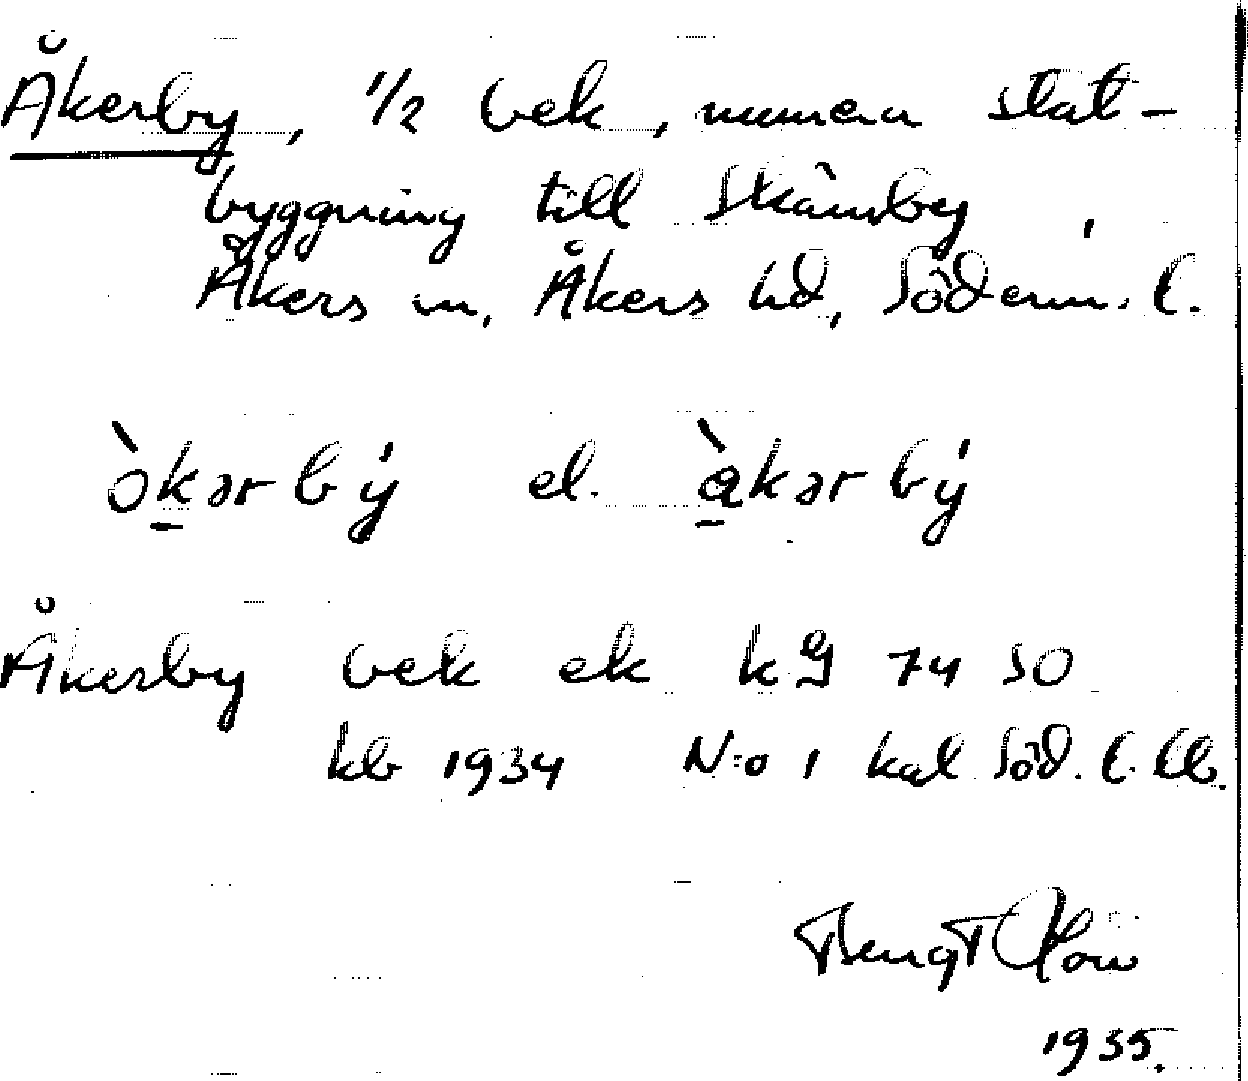 Åkerby, 1/2 bek, numera stat-
byggning till Skämby,
Åkers sn, Åkers hd, Söderm. l.
òkərbý el. àkərbý
Åkerby bek ek kg 74 SO
kb 1934 N:o 1 kal Söd. l.
Bengt
1935.